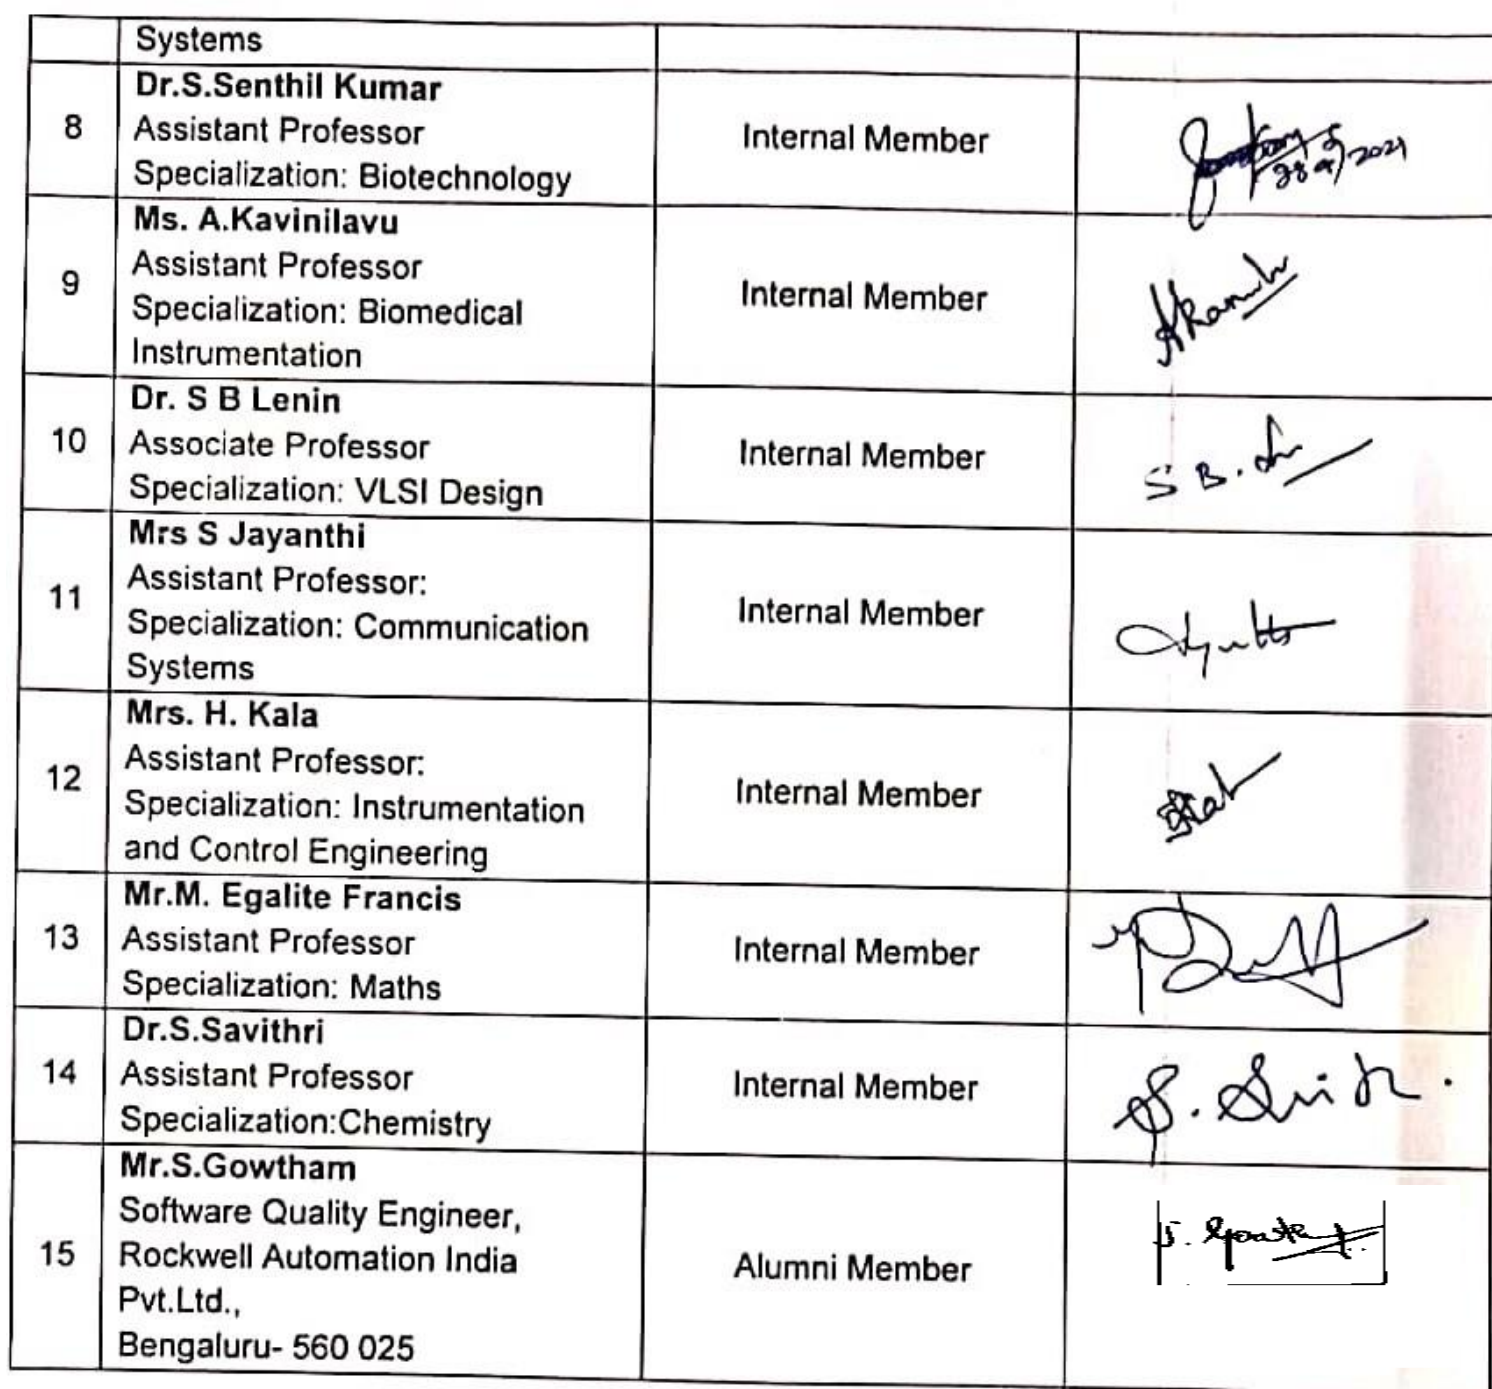 Systems
8
Dr.S.Senthil Kumar
Assistant Professor
Specialization: Biotechnology
Internal Member
9
Ms. A.Kavinilavu
Assistant Professor
Specialization: Biomedical
Instrumentation
Internal Member
10
Dr. S B Lenin
Associate Professor
Specialization: VLSI Design
Internal Member
S B.
11
Mrs S Jayanthi
Assistant Professor:
Specialization: Communication
Systems
Internal Member
12
Mrs. H. Kala
Assistant Professor:
Specialization: Instrumentation
and Control Engineering
Internal Member
13
Mr.M. Egalite Francis
Assistant Professor
Specialization: Maths
Internal Member
14
Dr.S.Savithri
Assistant Professor
Specialization:Chemistry
Internal Member
15
Mr.S.Gowtham
Software Quality Engineer,
Rockwell Automation India
Pvt.Ltd.,
Bengaluru- 560 025
Alumni Member